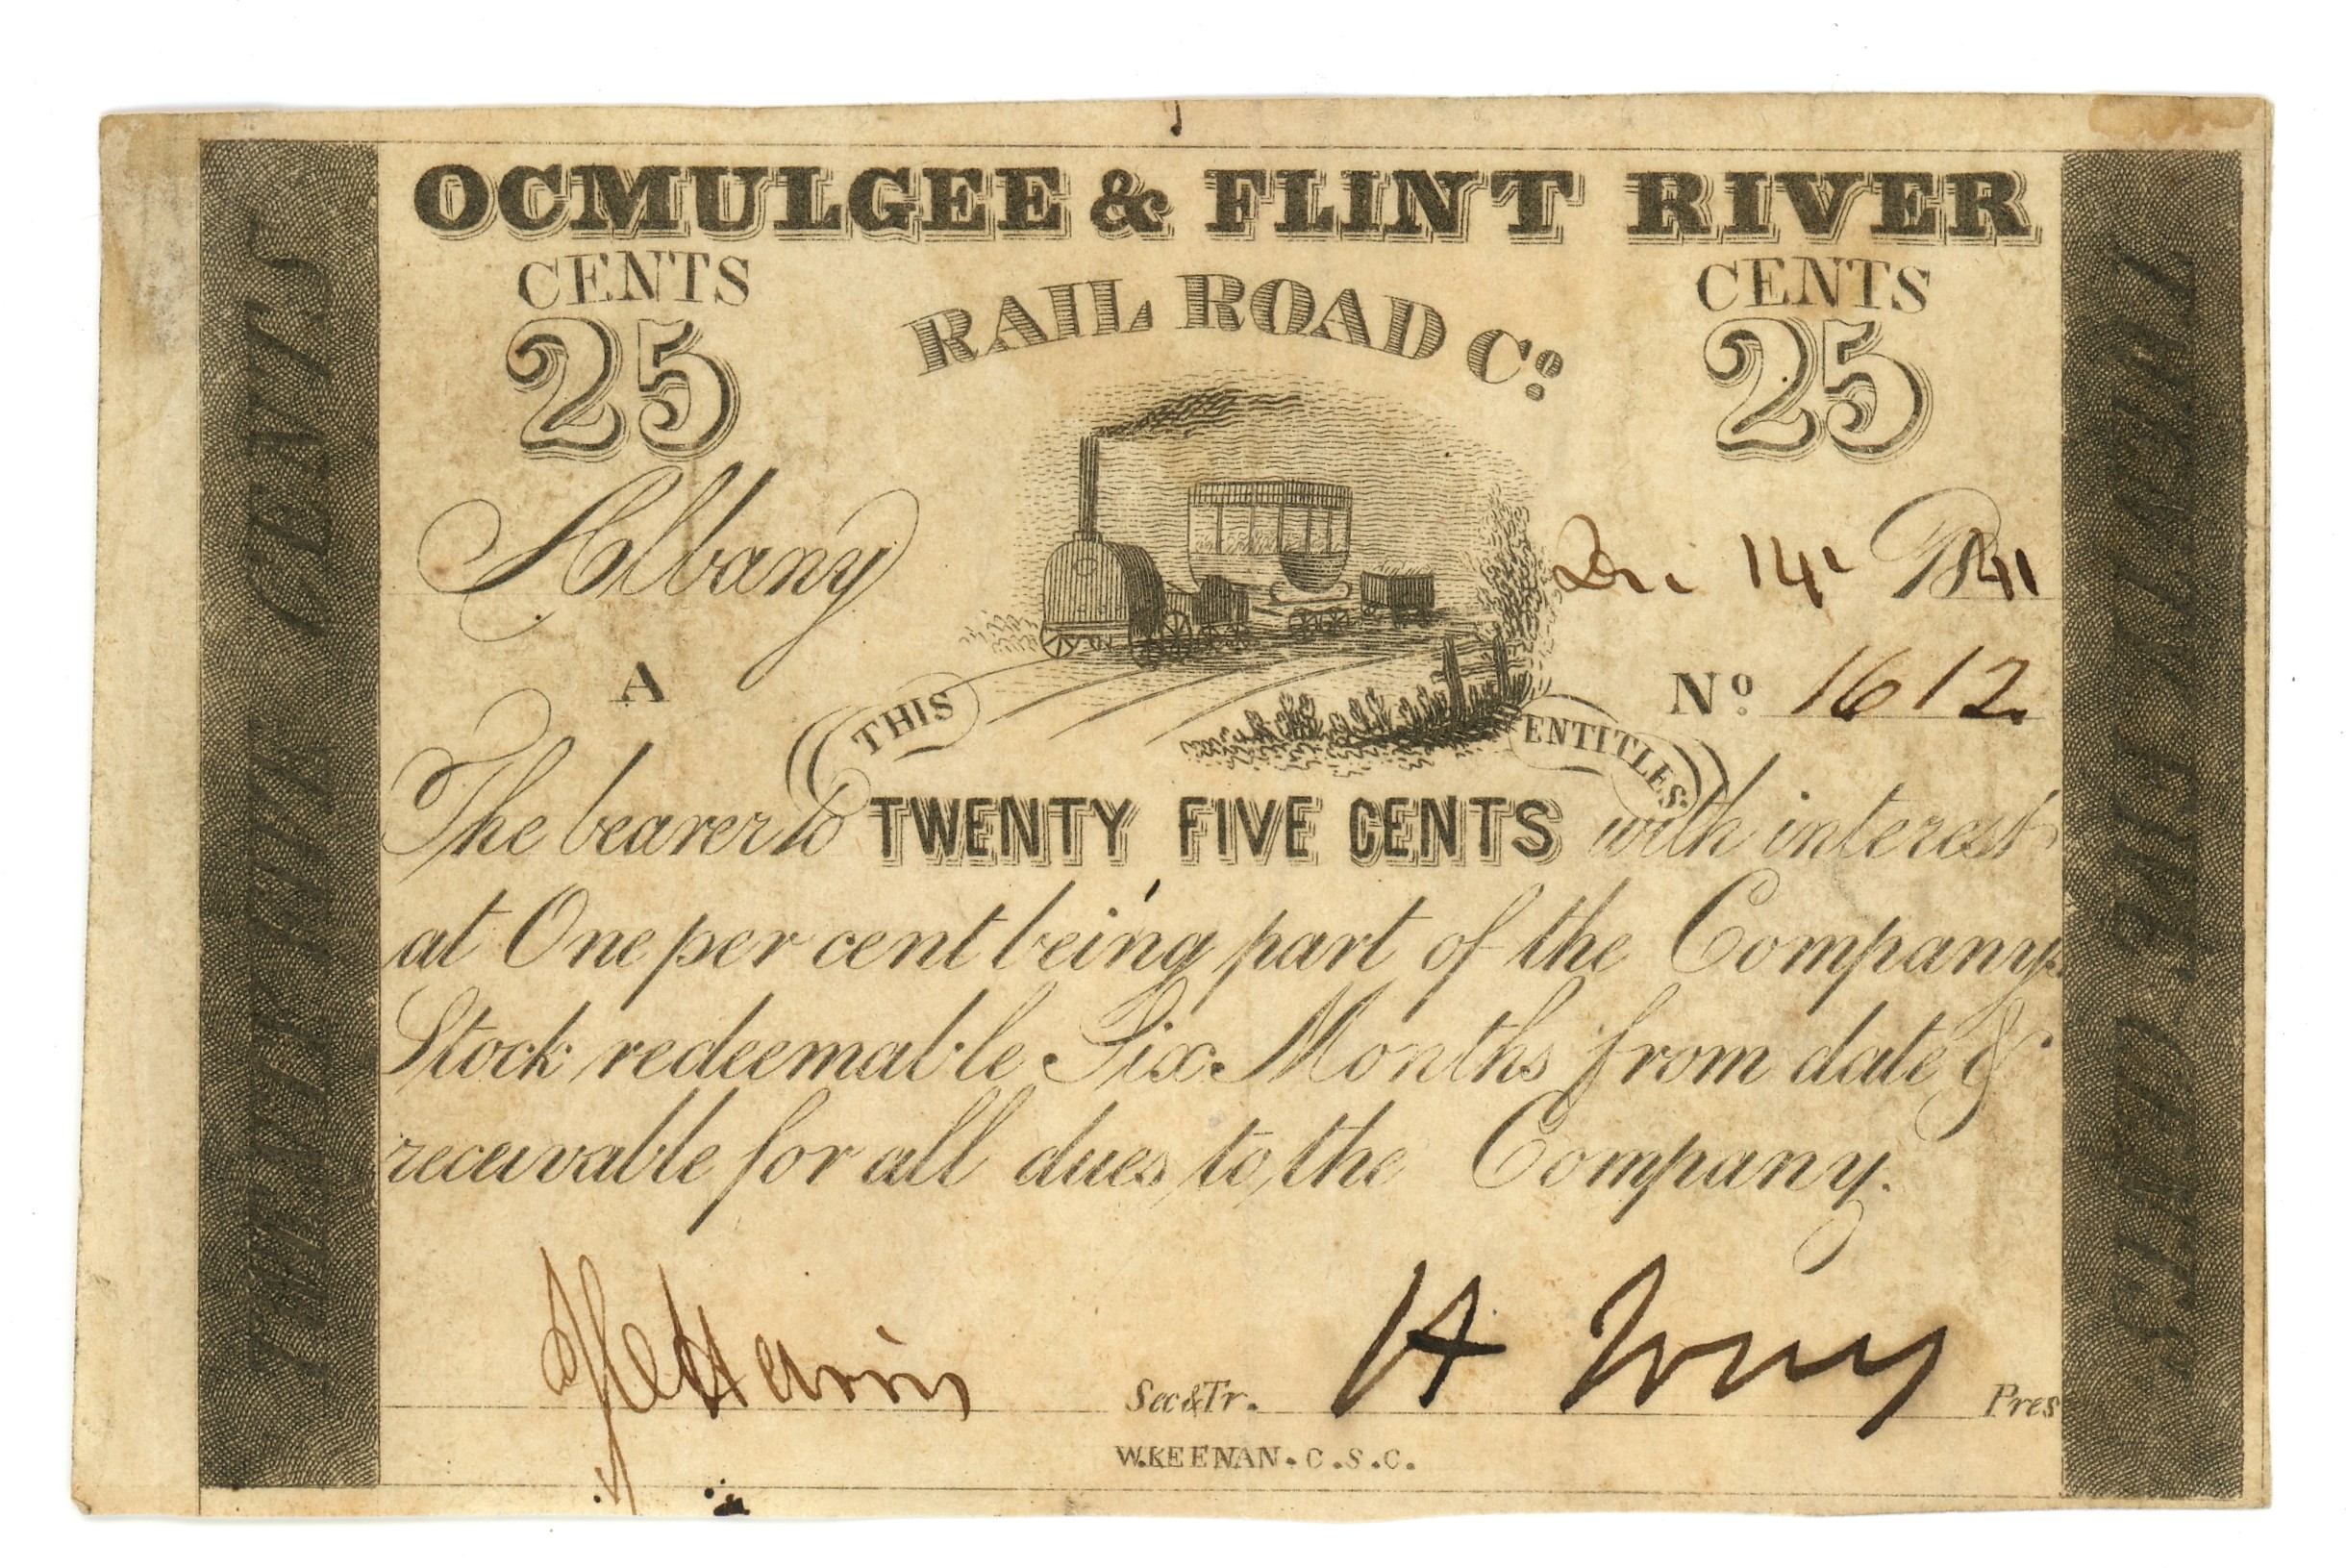 OCMULGEE & FLINT RIVER
CENTS
25
RAIL ROAD Co.
CENTS
25
Albany
Dec 14 1841
A
No. 1612
THIS ENTITLES
The bearer to TWENTY FIVE CENTS with interest
at One per cent being part of the Companys
Stock redeemable Six Months from date &
receivable for all dues to, the Company.
Harris Sec & Tr. H Pres
W.KEENAN.C.S.C.
TWENTY FIVE CENTS
TWENTY FIVE CENTS